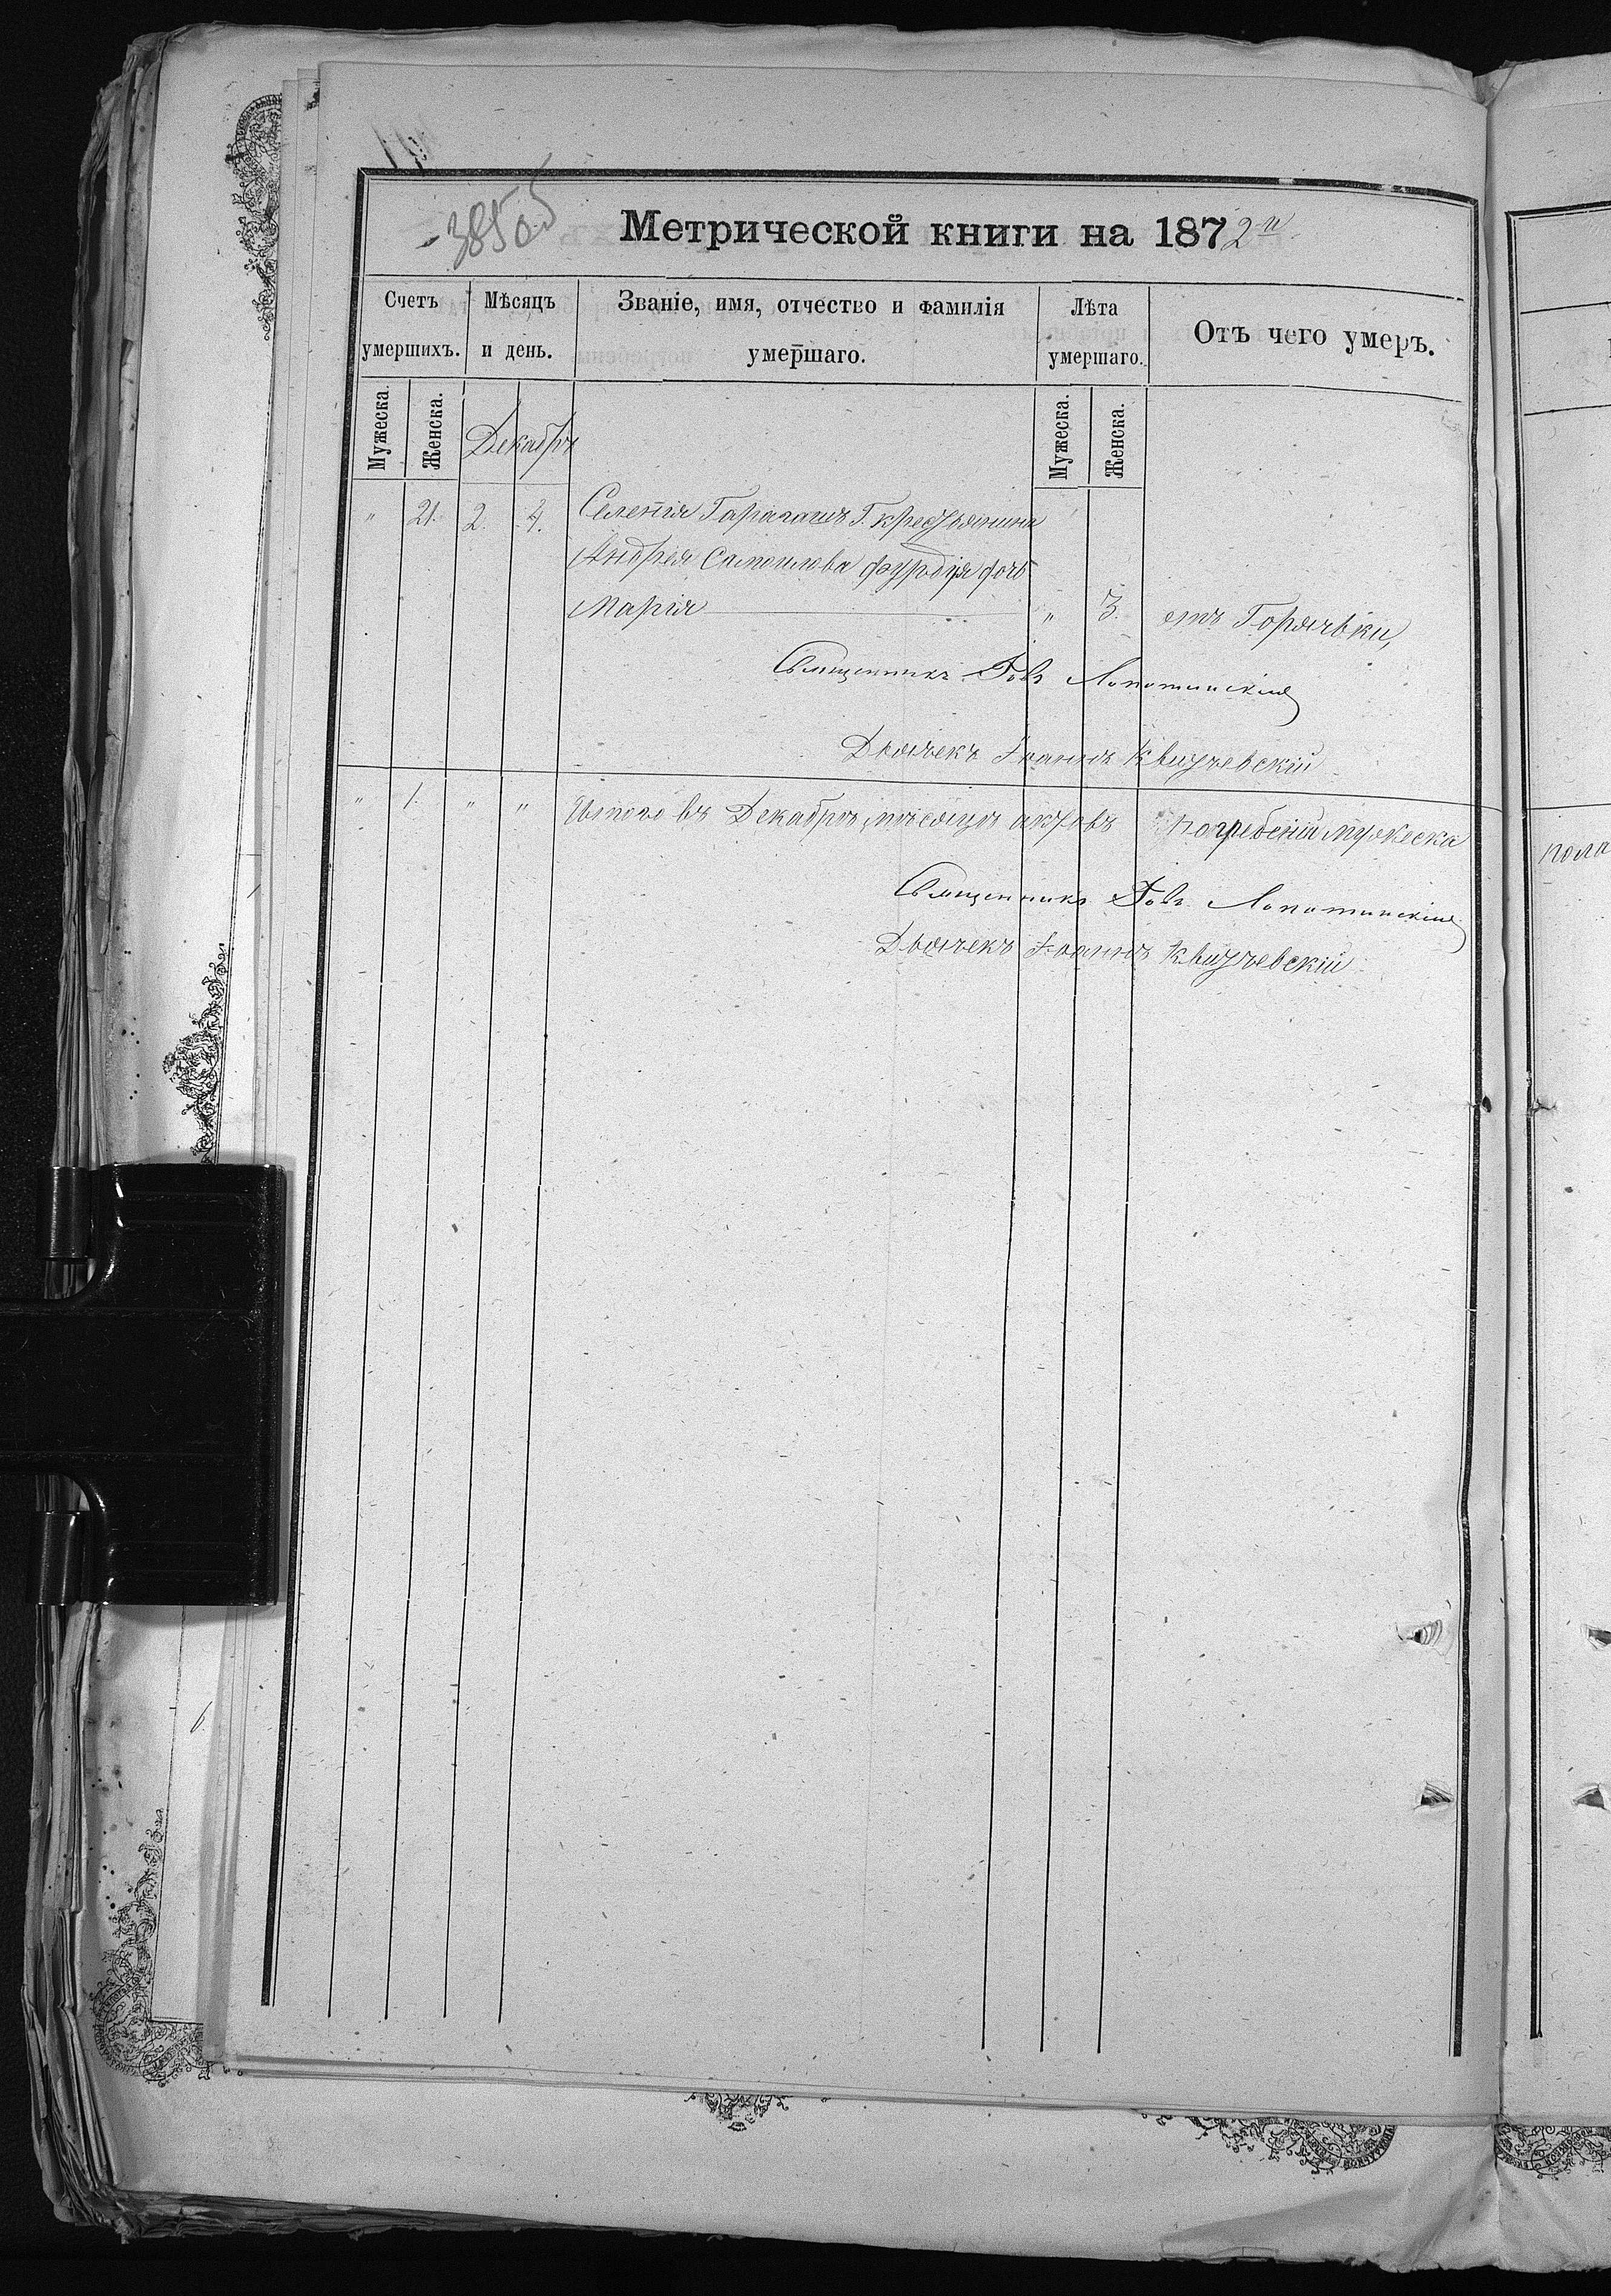 385об
Метрической книги на 1872й
Счетъ умершихъ.
Мѣсяцъ и день.
Званіе, имя, отчество и фамилія умершаго.
Лѣта умершаго.
Отъ чего умеръ.
Мужеска. Женска. Декабрь Мужеска. Женска.
" 21. 2. 4. Селенія Гарагашъ Г. Крестьянина
Андрея Самоилова дочь
Марія " 3. отъ Горячьки,
Священникъ Іовъ Лопотинскій
Дьячекъ Іоаннъ
" 1. " " Итого въ Декабрѣ мѣсяцѣ погребеній мужеска
пола
Священникъ Іовъ Лопотинскій
Дьячекъ Іоаннъ